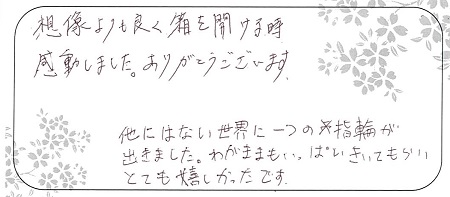 想像よりも良く箱を開ける時
感動しました。ありがとうございます。
他にはない世界に一つの指輪が
出きました。わがままもいっぱいきいてもらい
とても嬉しかったです。